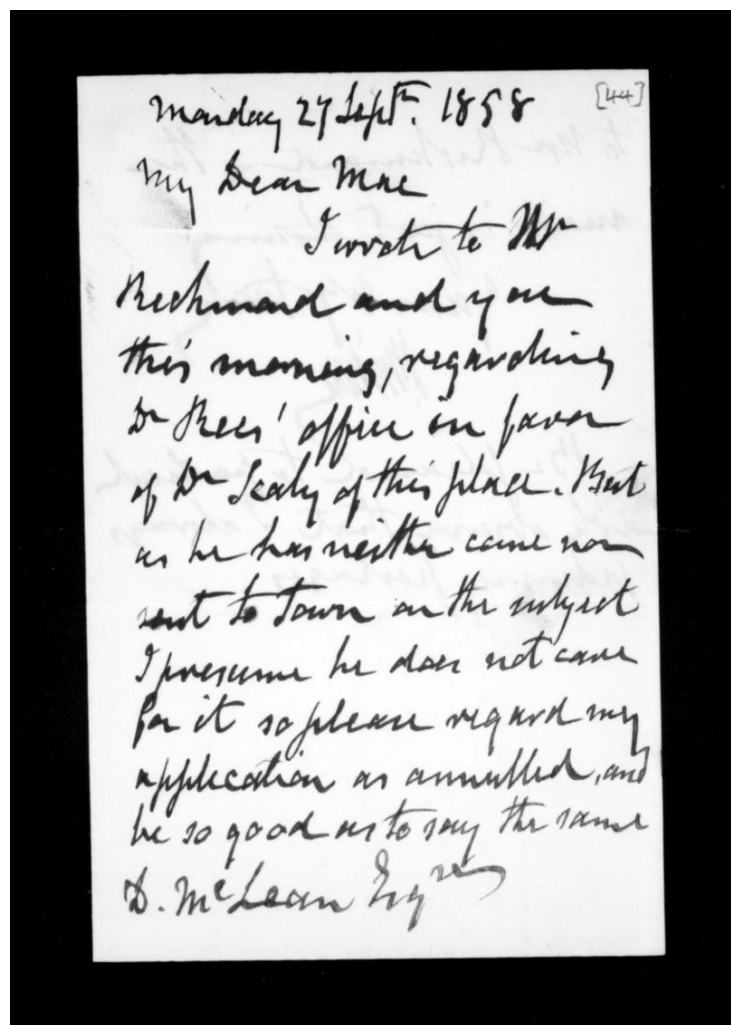 [44]
Monday 27 Septr. 1858
My Dear Mac
I wrote to Mr
Richmond and you
this morning, regarding
Dr Rees' office in favor
of Dr Sealy of this place. But
as he has neither came nor
sent to Town on the subject
I presume he does not care
for it so please regard my
application as annulled, and
be so good as to say the same
D. McLean Esqre